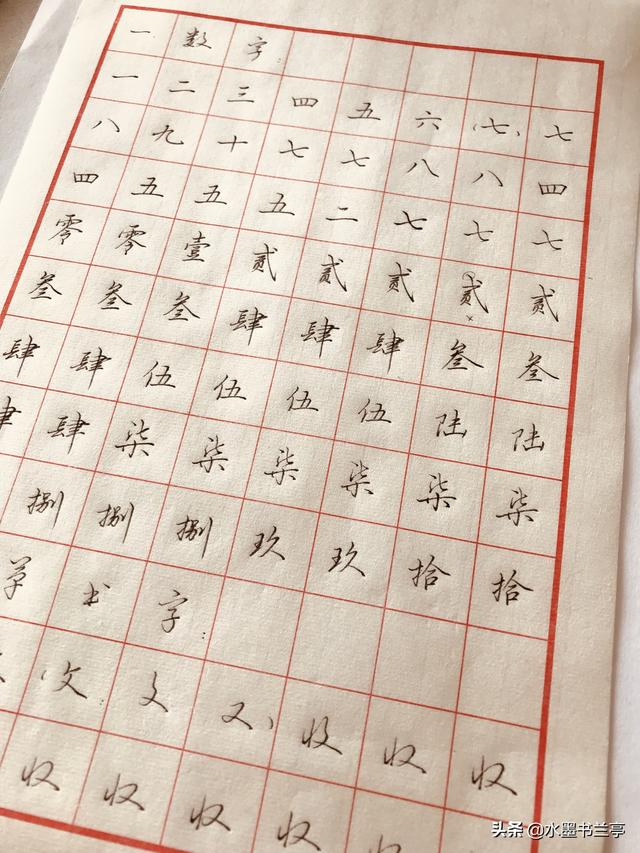 一数字
一二三四五六（七）七
八九十七七八八四
四五五五二七七七
零零壹贰贰贰贰贰
叁叁叁肆肆肆叁叁
肆肆伍伍伍伍陆陆
肆肆柒柒柒柒柒柒
捌捌捌玖玖拾拾
草书字
（文文又）收收收
收收收收收
头条 @水墨书兰亭